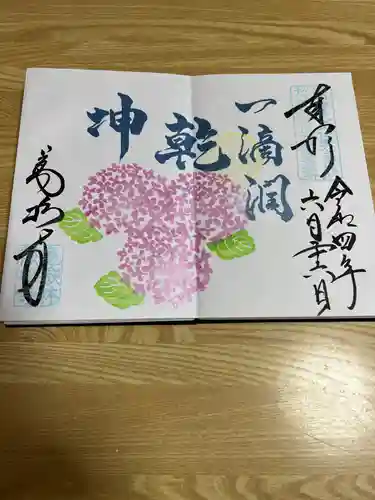 奉拝
令和四年
六月二十六日
一滴潤
乾
坤
萬松寺